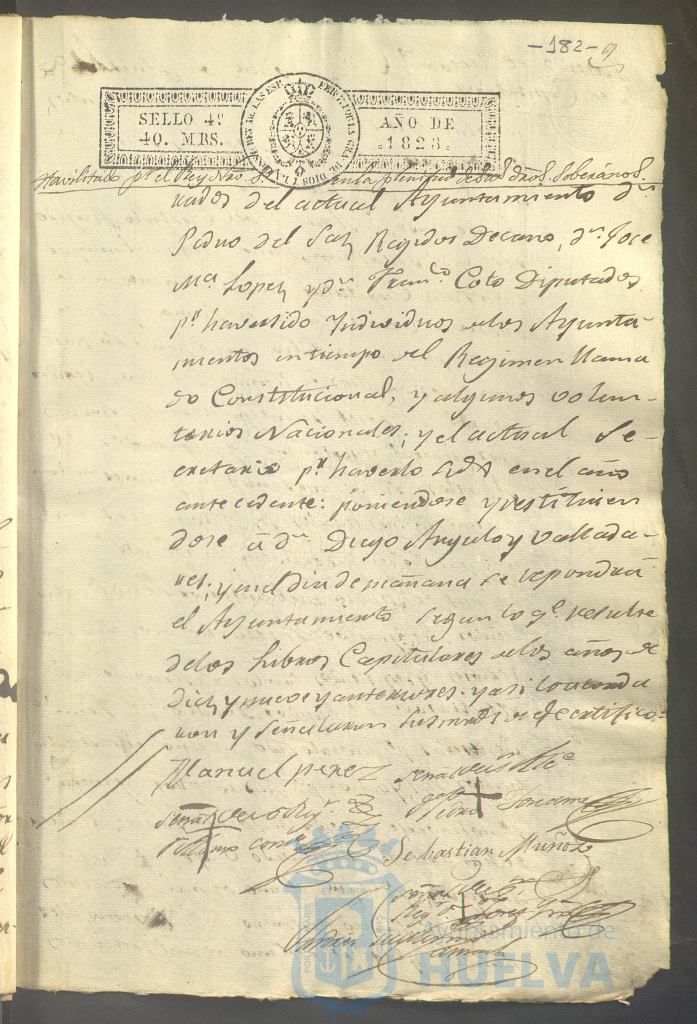 -182-
SELLO 4º
40. MRS.
AÑO DE
1823.
FERN. 7 POR LA GR. DE DIOS Y LA CONST. REY DE LAS ESP.
Havilitado pr. el Rey Nro. S. en la plenitud de sus dros. Soberanos.
nados del actual Ayuntamiento Dn.
Pedro del Saz Regidor Decano, Dn. Jose
Ma. Lopez y Dn. Franco. Coto Diputados
pr. haver sido Individuos de los Ayunta-
mientos en tiempo del Regimen llama
do Constitucional, y algunos volun-
tarios Nacionales; y el actual Se-
cretario pr. haverlo sido en el año
antecedente: poniendose y restituien
dose á Dn. Diego Angulo y Vallada-
res; y en el dia de mañana se repondrá
el Ayuntamiento segun lo qe. resulte
de los Libros Capitulares de los años de
diez y nueve y anteriores. y asi lo acorda
ron y señalaron de certifico=
Manuel perez
Señal del
Pedro
Señal del
Sebastian Muñoz
Señal del
Jose
Ayuntamiento de
HUELVA